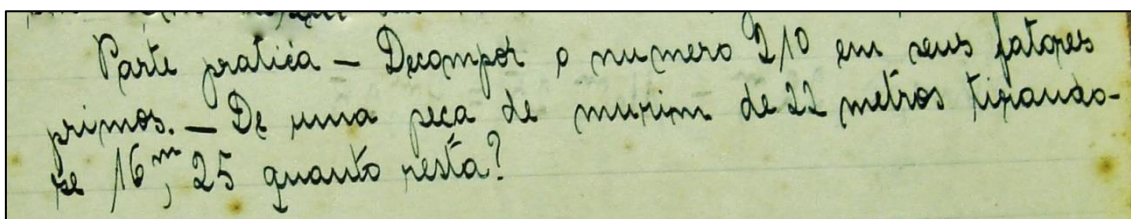 Parte pratica — Decompor o numero 210 em seus fatores
primos. — De uma peça de murim de 22 metros tirando-
se 16m, 25 quanto resta?